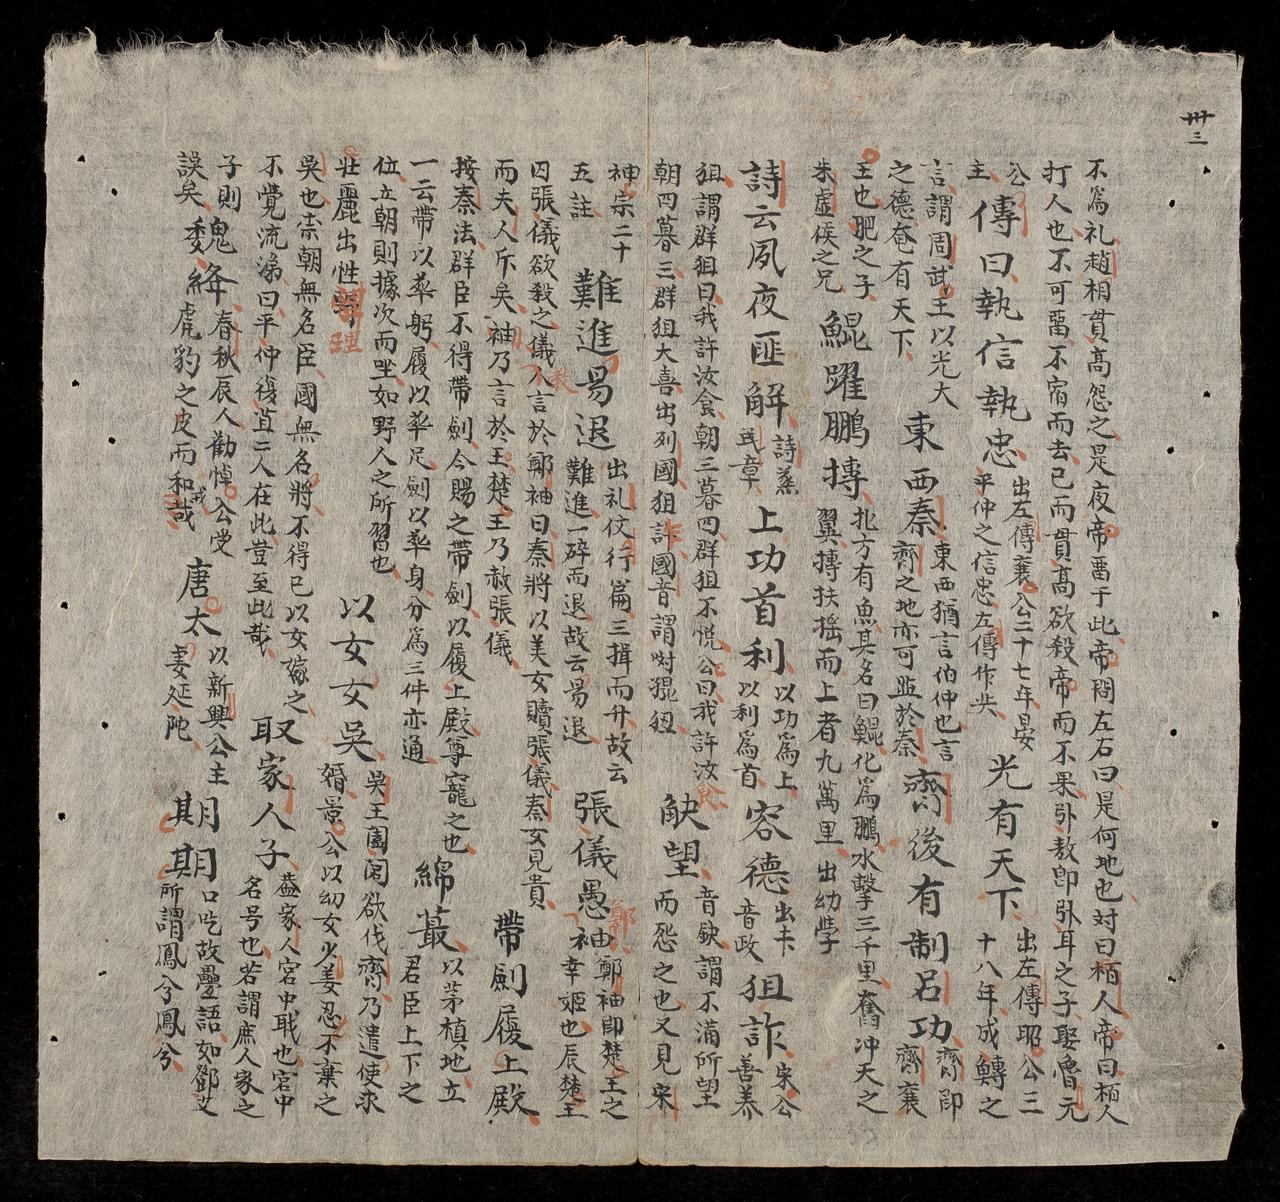 卅三
不爲礼趙相貫高怨之是夜帝畱于此帝問左右曰是何地也対曰栢人帝曰栢人
打人也不可畱不宿而去已而貫高欲殺帝而不果引敖卽引耳之子娶魯元
公
主
傳曰執信執忠
出左傳襄公二十七年晏
平仲之信忠左傳作共
光有天下
出左傳昭公三
十八年成鱄之
言謂周武王以光大
之德奄有天下
東西秦
東西猶言伯仲也言
齊之地亦可並於秦
齊後有制呂功
齊卽
齊襄
王也肥之子
朱虛侯之兄
鯤躍鵬摶
北方有魚其名曰鯤化爲鵬水擊三千里奮冲天之
翼摶扶揺而上者九萬里出幼學
詩云夙夜匪解
詩蒸
民章
上功首利
以功爲上
以利爲首
容德
出夫
音政
狙詐
宋公
善养
狙謂群狙曰我許汝食朝三暮四群狙不悅公曰我許汝食
朝四暮三群狙大喜出列國狙詐國音謂咐猑狃
觖望
音鈌謂不滿所望
而怨之也又見宋
神宗二十
五註
難進易退
出礼仪行篇三揖而升故云
難進一辞而退故云易退
張儀愚袖
鄭
鄭袖卽楚王之
幸姬也辰楚王
囚張儀欲殺之儀入言於鄭袖曰秦將以美女贖張儀秦女見貴
教
而夫人斥矣袖乃言於王楚王乃赦張儀
帶劍履上殿
按秦法群臣不得帶劍今賜之帶劍以履上殿尊寵之也
一云帶以率躬履以率足劍以率身分爲三件亦通
綿蕞
以茅植地立
君臣上下之
位立朝則據次而坐如野人之所習也
壯麗出性理
以女女吳
吳王闔閭欲伐齊乃遣使求
婚景公以幼女少姜忍不棄之
吳也崇朝無名臣國無名將不得已以女嫁之
不覺流涕曰平仲穰苴二人在此豈至此哉
取家人子
葢家人宮中職也宮中
名号也若謂庶人家之
子則
誤矣
魏絳
春秋辰人勸悼公受
委虎豹之皮而和戎
唐太
以新興公主
妻延陀
期期
口吃故疊語如鄧艾
所謂鳳兮鳳兮